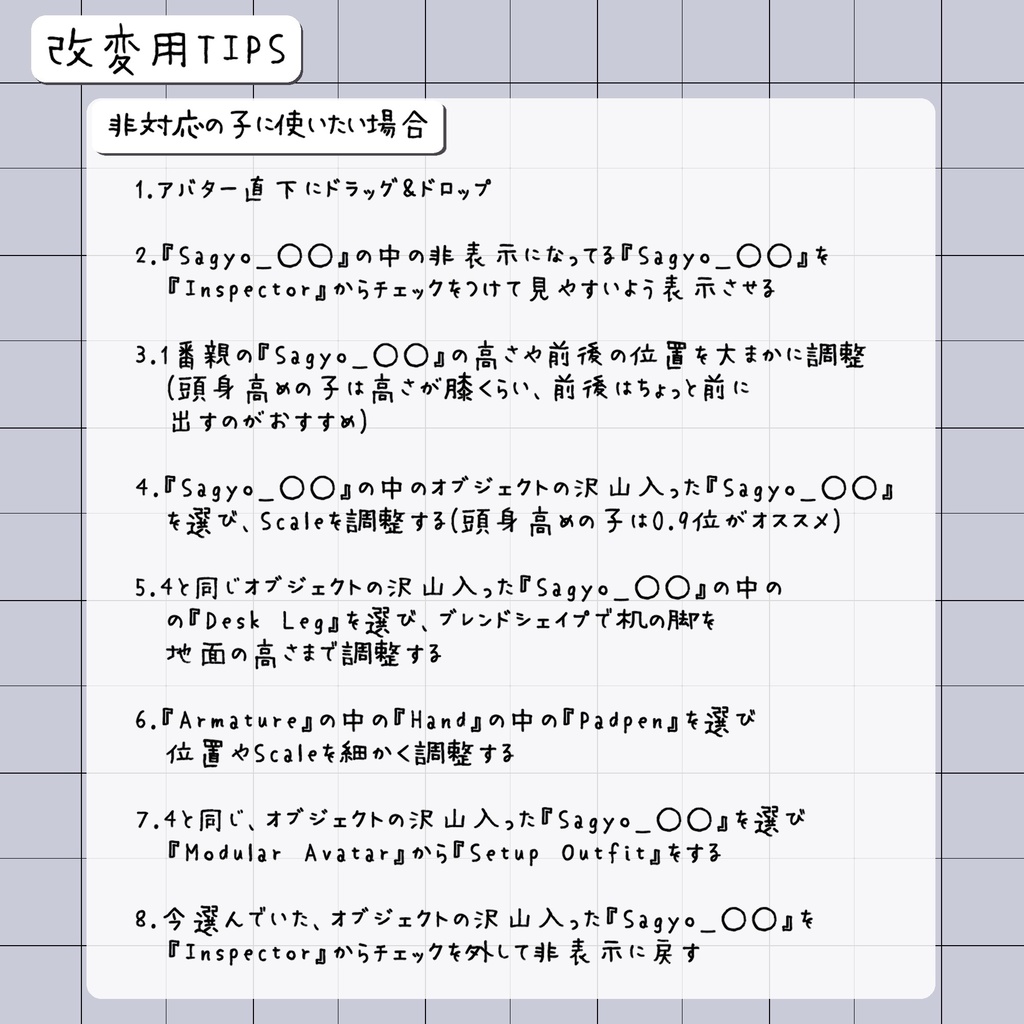 改変用TIPS
非対応の子に使いたい場合
1.アバター直下にドラッグ&ドロップ
2.『Sagyo_〇〇』の中の非表示になってる『Sagyo_〇〇』を
『Inspector』からチェックをつけて見やすいよう表示させる
3.1番親の『Sagyo_〇〇』の高さや前後の位置を大まかに調整
(頭身高めの子は高さが膝くらい、前後はちょっと前に
出すのがおすすめ)
4.『Sagyo_〇〇』の中のオブジェクトの沢山入った『Sagyo_〇〇』
を選び、Scaleを調整する(頭身高めの子は0.9位がオススメ)
5.4と同じオブジェクトの沢山入った『Sagyo_〇〇』の中の
の『Desk Leg』を選び、ブレンドシェイプで机の脚を
地面の高さまで調整する
6.『Armature』の中の『Hand』の中の『Padpen』を選び
位置やScaleを細かく調整する
7.4と同じ、オブジェクトの沢山入った『Sagyo_〇〇』を選び
『Modular Avatar』から『Setup Outfit』をする
8.今選んでいた、オブジェクトの沢山入った『Sagyo_〇〇』を
『Inspector』からチェックを外して非表示に戻す